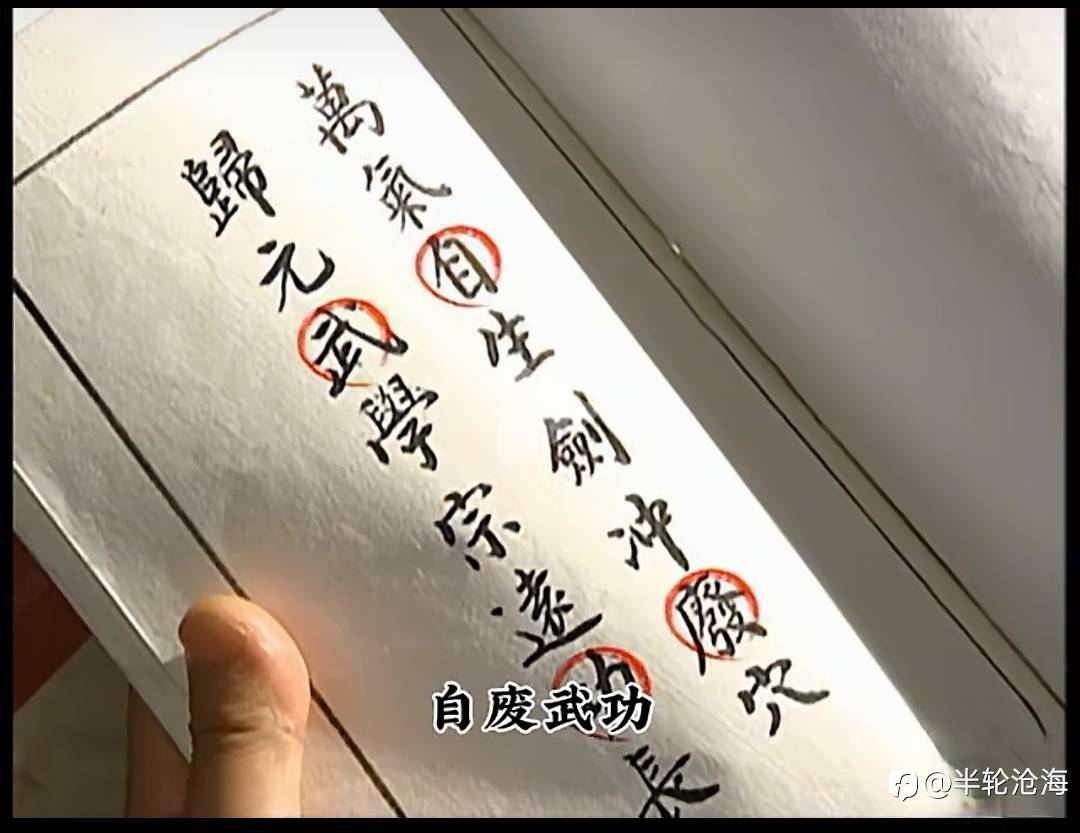 萬氣自生劍冲廢穴
歸元武學宗遠功長
自废武功
@半轮沧海